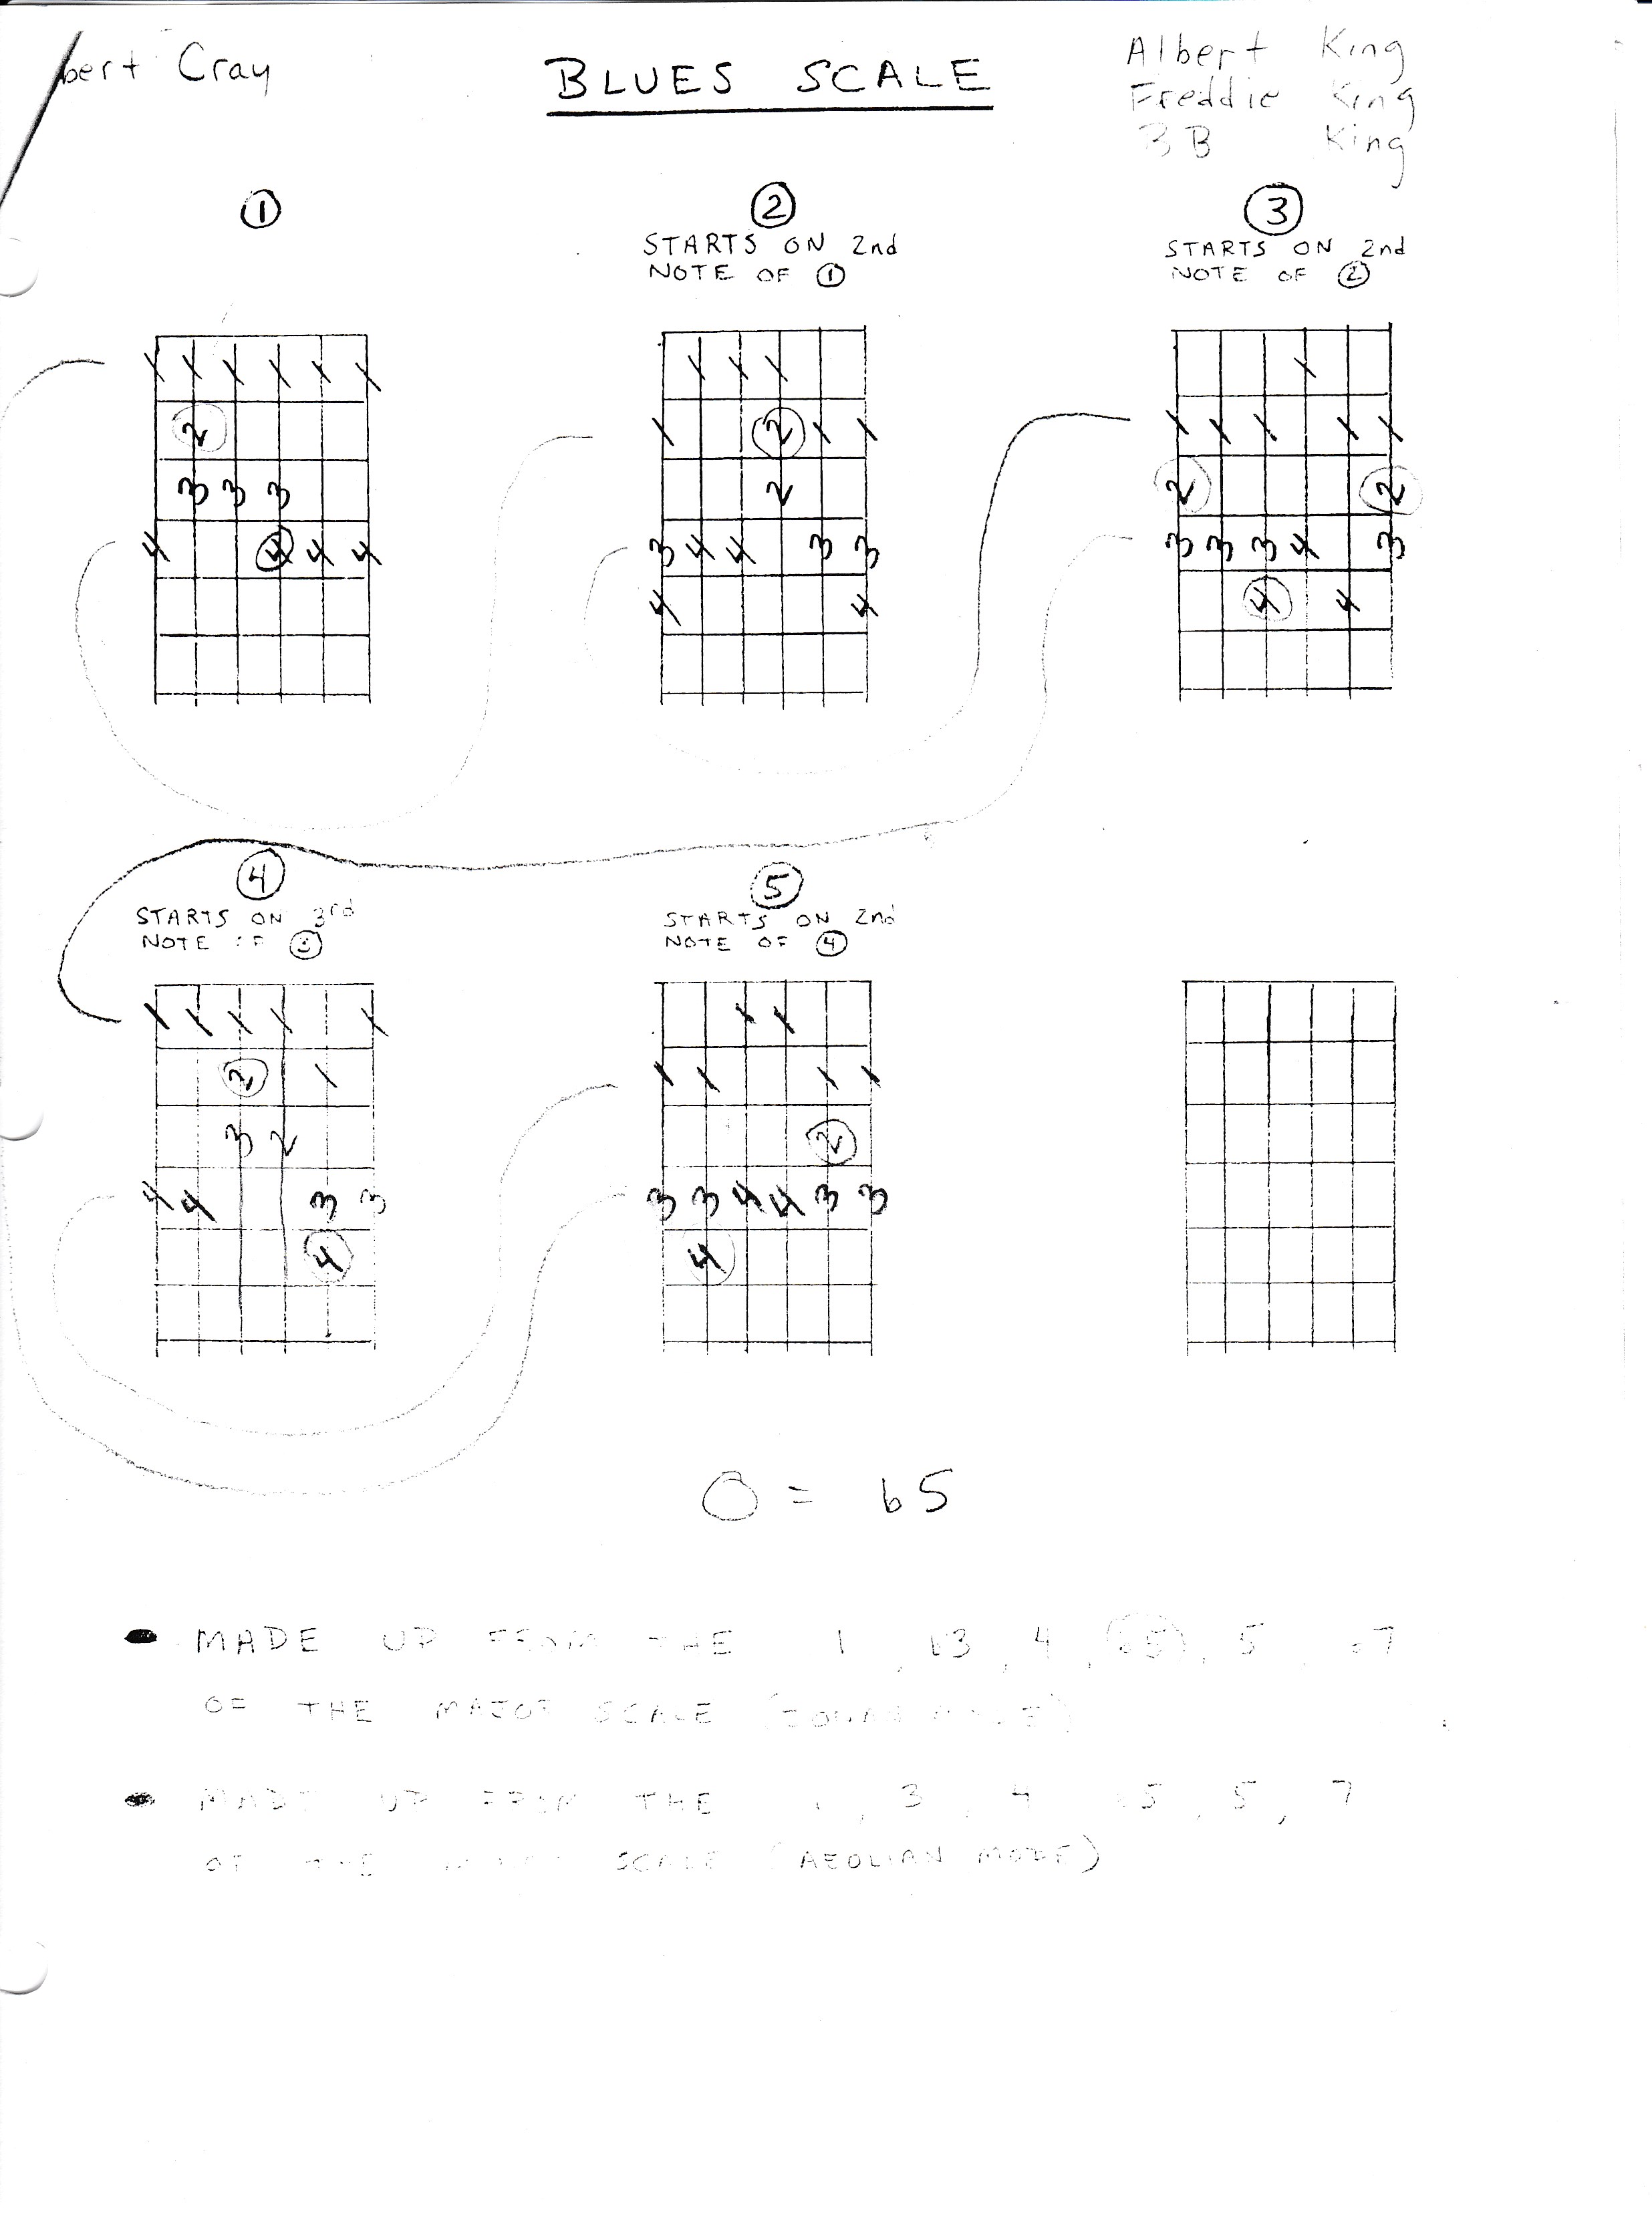 bert Cray
BLUES SCALE
Albert King
Freddie King
BB King
1
2
STARTS ON 2nd
NOTE OF 1
3
STARTS ON 2nd
NOTE OF 2
1 1 1 1 1 1
2
3 3 3
4 4 4 4
1 1 1
1 2 1 1
2
3 4 4 3 3
4 4
1
1 1 1 1 1
2 2
3 3 3 4 3
4 4
4
STARTS ON 3rd
NOTE OF 3
5
STARTS ON 2nd
NOTE OF 4
1 1 1 1 1
2 1
3 2
4 4 3 3
4
1 1
1 1 1 1
2
3 3 4 4 3 3
4
O = b5
MADE UP FROM THE 1, b3, 4, b5, 5, b7
OF THE MAJOR SCALE
MADE UP FROM THE 3, 4, 5, 7
OF THE SCALE (AEOLIAN MODE)